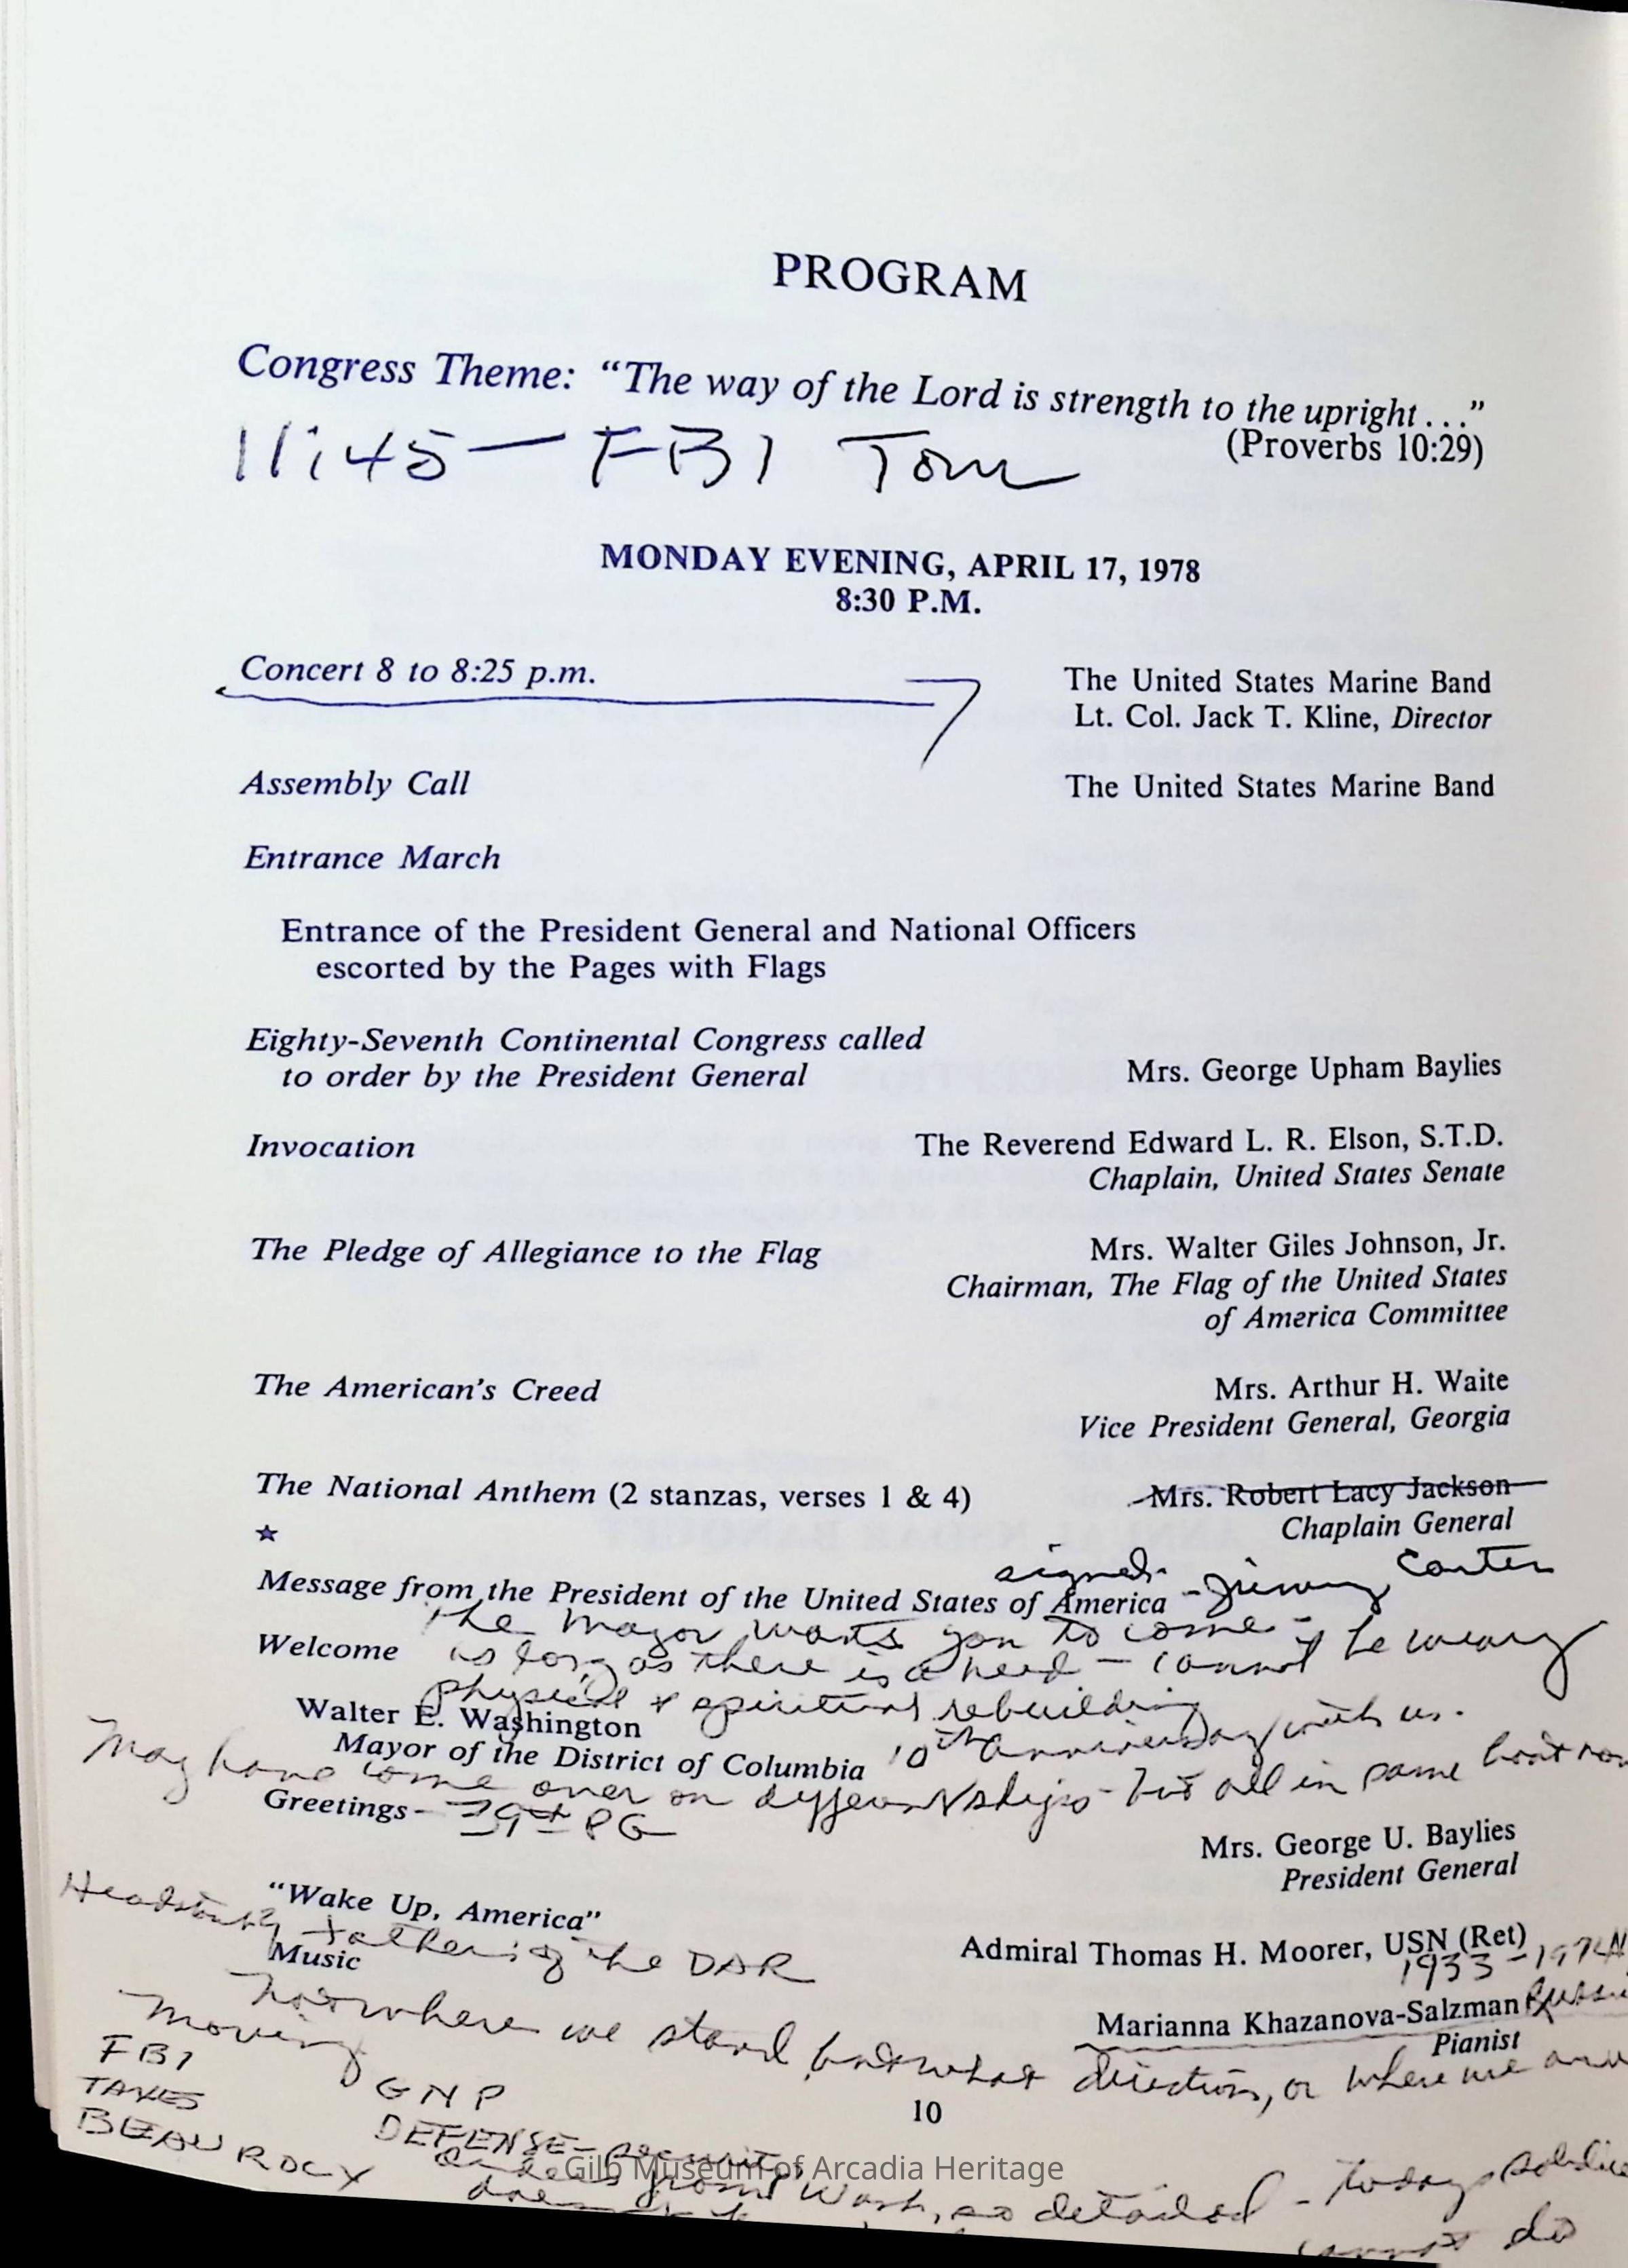 PROGRAM
Congress Theme: “The way of the Lord is strength to the upright...”
(Proverbs 10:29)
11:45 — FBI Tour
MONDAY EVENING, APRIL 17, 1978
8:30 P.M.
Concert 8 to 8:25 p.m. The United States Marine Band
Lt. Col. Jack T. Kline, Director
Assembly Call The United States Marine Band
Entrance March
Entrance of the President General and National Officers
escorted by the Pages with Flags
Eighty-Seventh Continental Congress called
to order by the President General Mrs. George Upham Baylies
Invocation The Reverend Edward L. R. Elson, S.T.D.
Chaplain, United States Senate
The Pledge of Allegiance to the Flag Mrs. Walter Giles Johnson, Jr.
Chairman, The Flag of the United States
of America Committee
The American's Creed Mrs. Arthur H. Waite
Vice President General, Georgia
The National Anthem (2 stanzas, verses 1 & 4) Mrs. Robert Lacy Jackson
★ Chaplain General
signed - Jimmy Carter
Message from the President of the United States of America
The Mayor wants you to come -
Welcome as long as there is a need - cannot be weary
physical & spiritual rebuilding
Walter E. Washington
10th anniversary with us.
Mayor of the District of Columbia
May have come over on different ships - but all in same boat now
Greetings - 39th PG
Mrs. George U. Baylies
President General
“Wake Up, America”
Admiral Thomas H. Moorer, USN (Ret)
1933 - 1974
father of the DAR
Music
Marianna Khazanova-Salzman
Pianist
Not where we stand but what direction, or where we are
moving
FBI
TAXES
BEAUROCY
GNP
DEFENSE - security
10
from Wash, so detailed - today's
cannot do
Gilb Museum of Arcadia Heritage